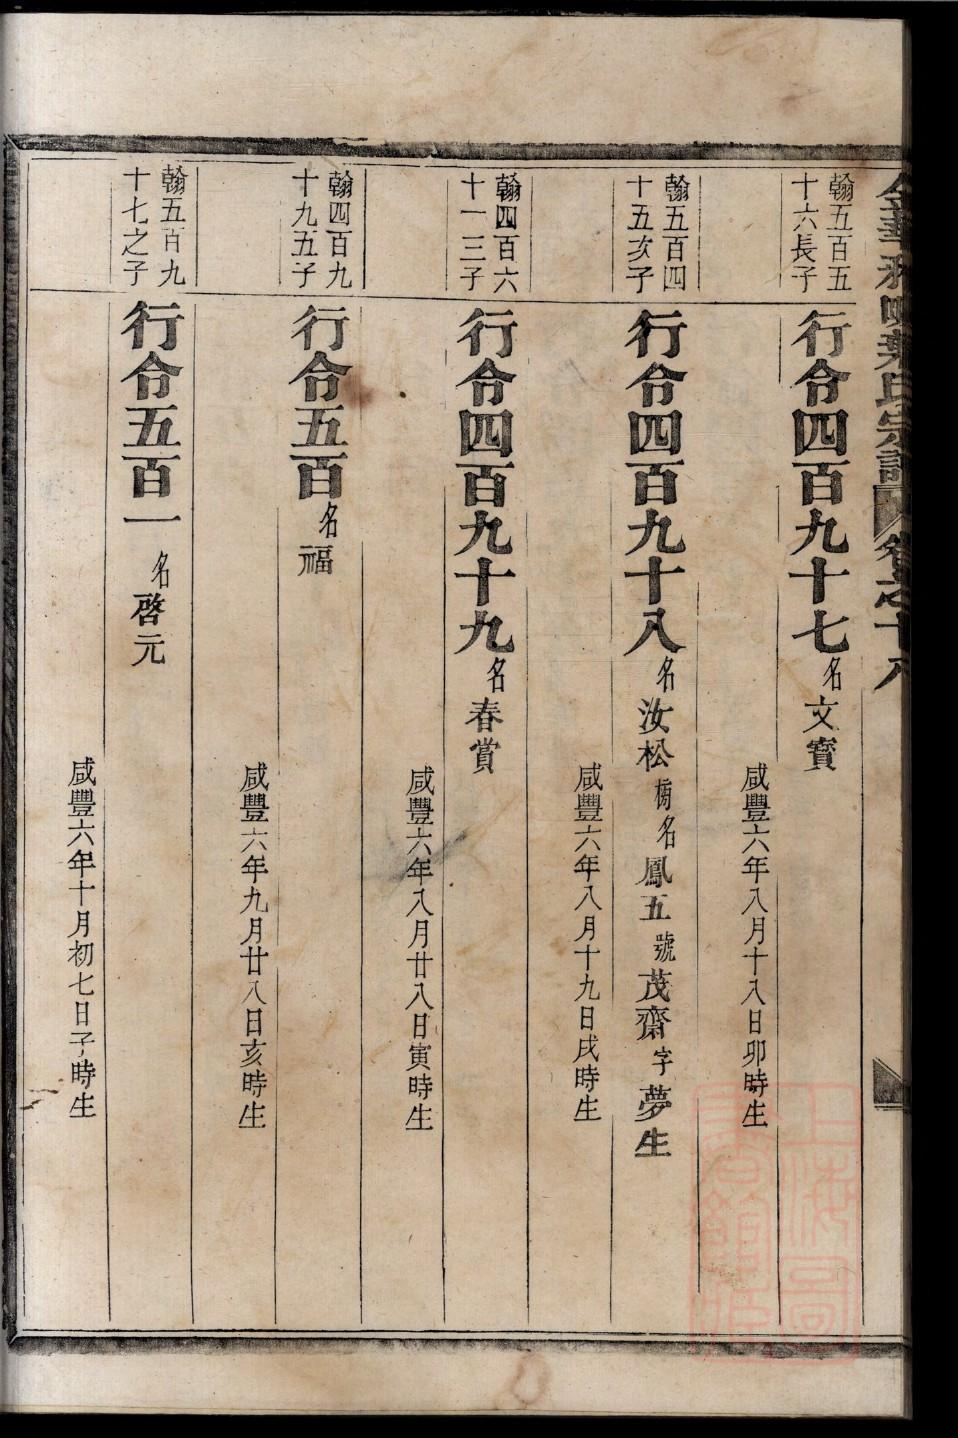 翰五百五
十六長子
行令四百九十七名文寳
咸豐六年八月十八日卯時生
翰五百四
十五次子
行令四百九十八名汝松榜名鳳五號茂齋字夢生
咸豐六年八月十九日戌時生
翰四百六
十一三子
行令四百九十九名春賞
咸豐六年八月廿八日寅時生
翰四百九
十九五子
行令五百名福
咸豐六年九月廿八日亥時生
翰五百九
十七之子
行令五百一名啓元
咸豐六年十月初七日子時生